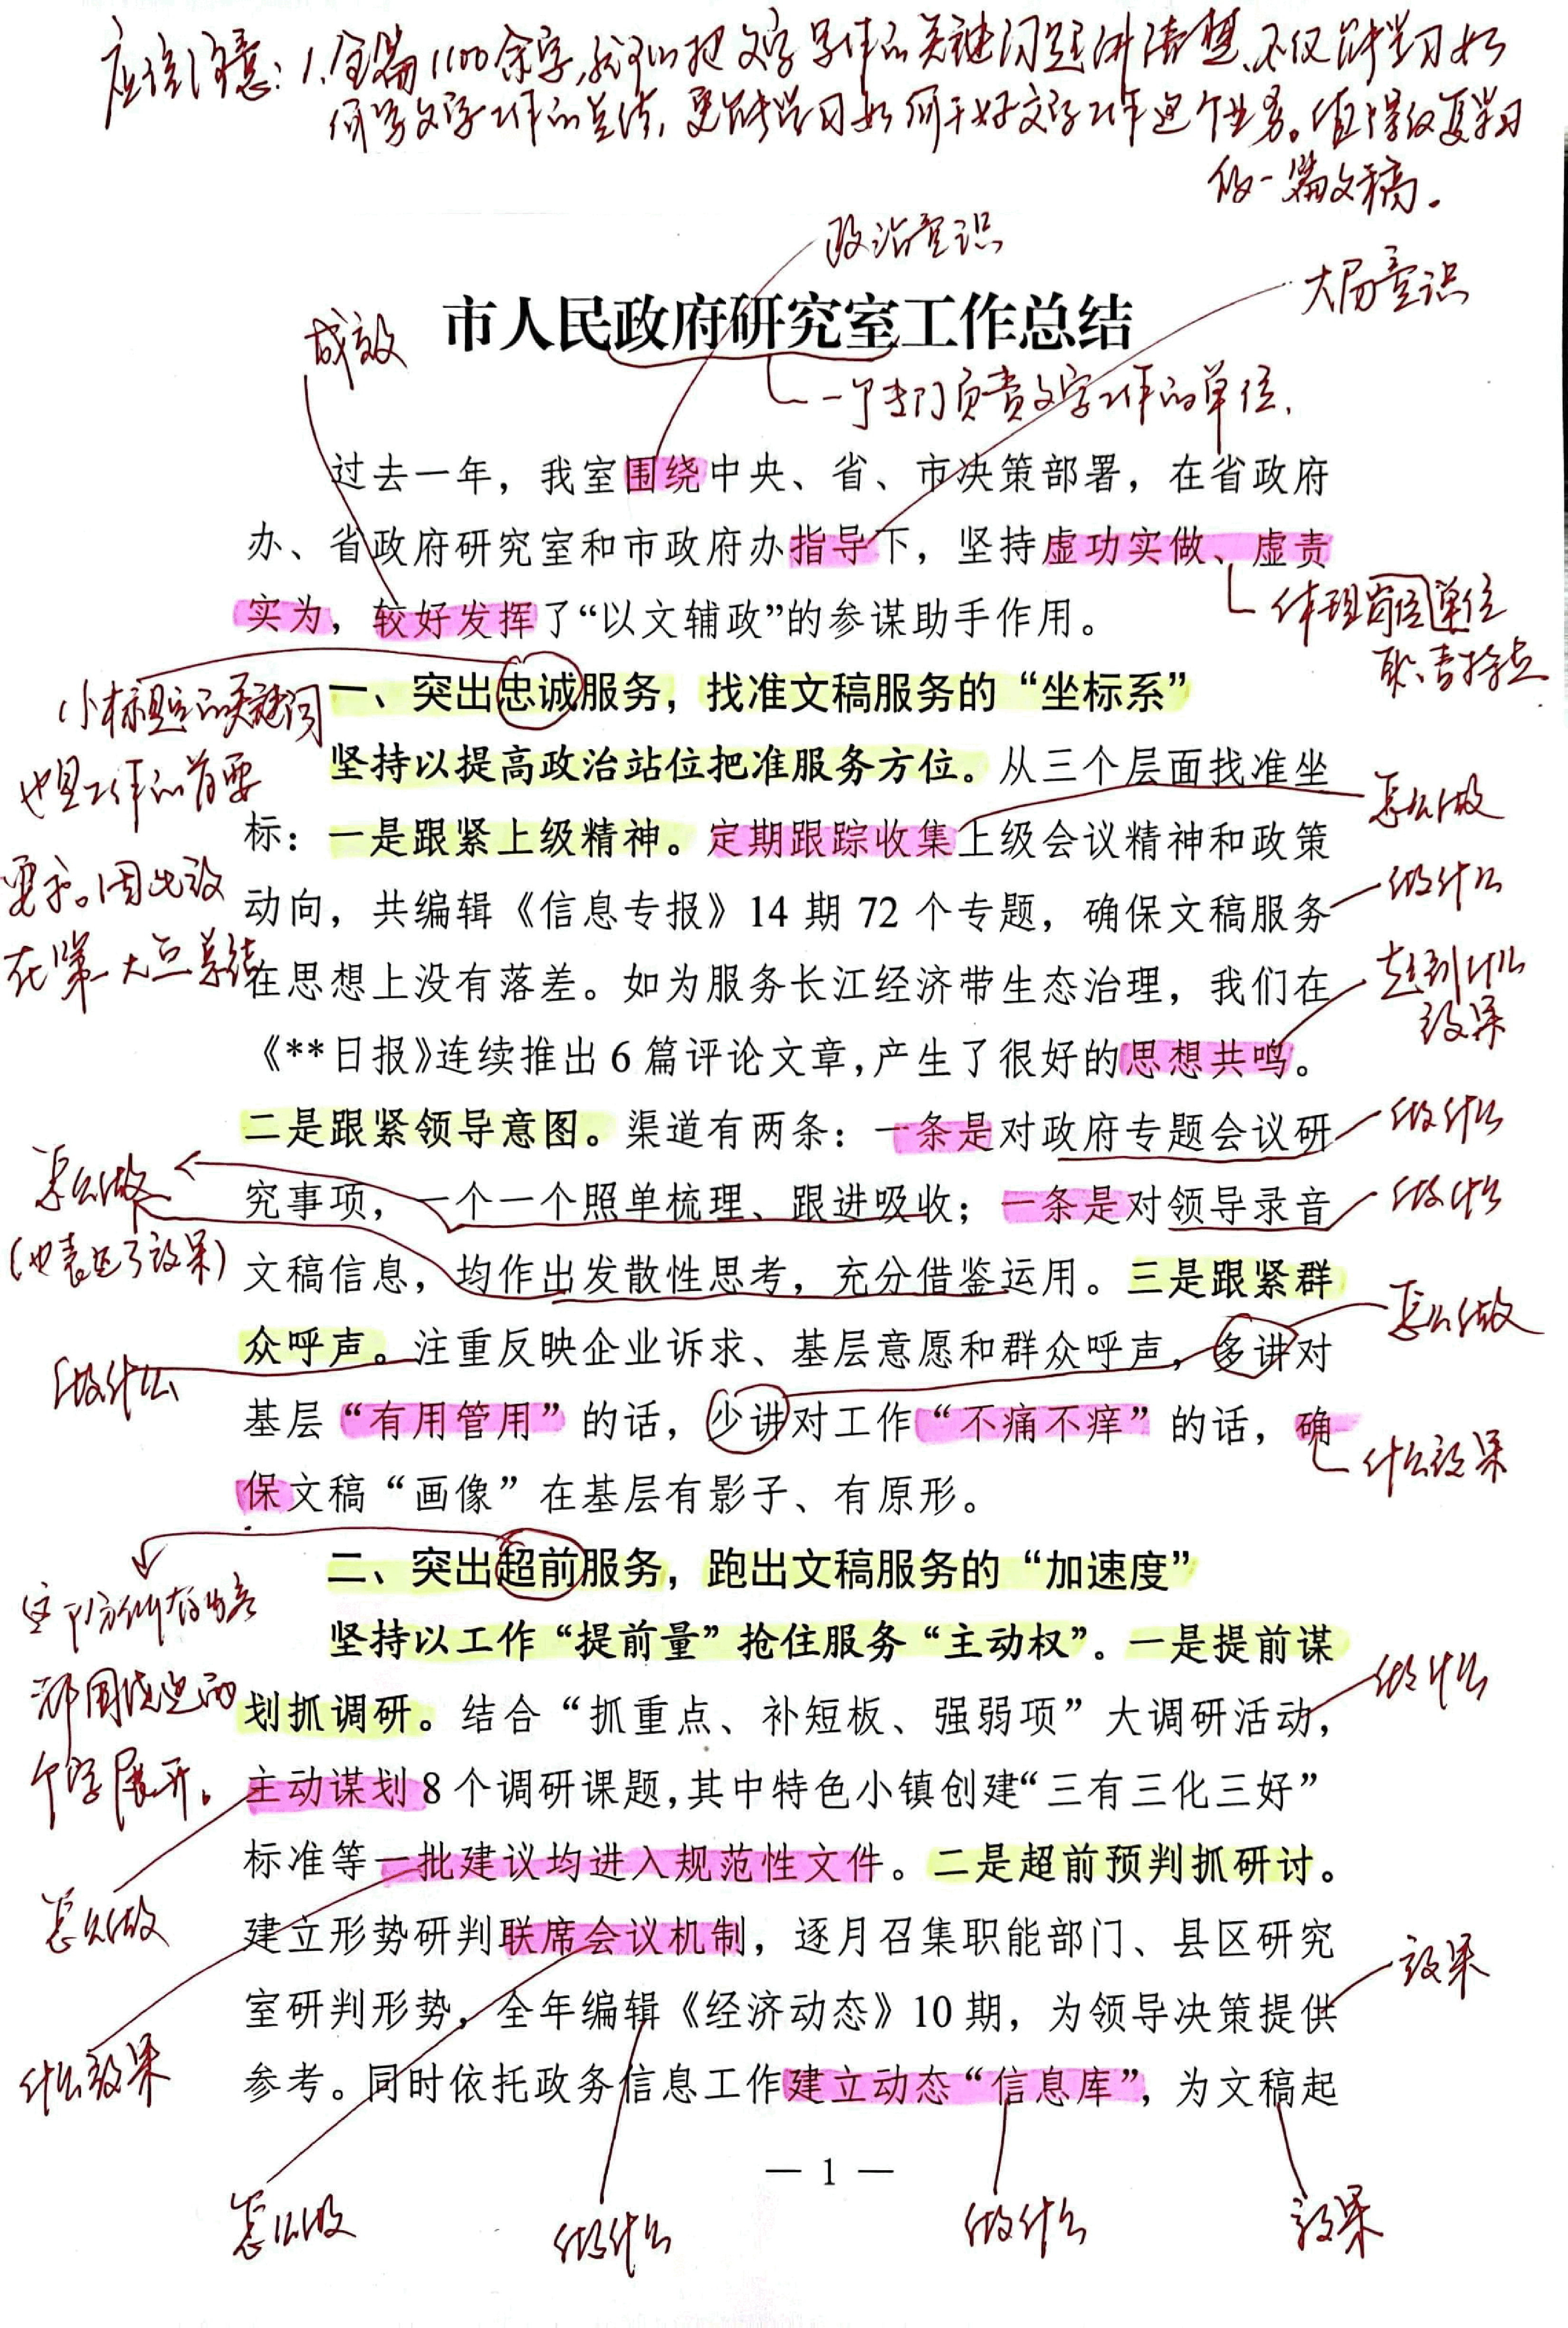 应该注意：1.全篇1100余字，就可以把文字写作的关键问题讲清楚，不仅能学习如
何写文字工作的总结，更能学习如何干好文字工作这个业务。值得反复学习
的一篇文稿。
政治意识
大局意识
成效
市人民政府研究室工作总结
一个专门负责文字工作的单位.
过去一年，我室围绕中央、省、市决策部署，在省政府
办、省政府研究室和市政府办指导下，坚持虚功实做、虚责
实为，较好发挥了“以文辅政”的参谋助手作用。
体现岗位单位
职责特点
一、突出忠诚服务，找准文稿服务的“坐标系”
小标题的关键词
也是工作的首要
要求。因此放
在第一大点总结
坚持以提高政治站位把准服务方位。从三个层面找准坐
怎么做
标：一是跟紧上级精神。定期跟踪收集上级会议精神和政策
做什么
动向，共编辑《信息专报》14期72个专题，确保文稿服务
在思想上没有落差。如为服务长江经济带生态治理，我们在
起到什么
效果
《**日报》连续推出6篇评论文章，产生了很好的思想共鸣。
二是跟紧领导意图。渠道有两条：一条是对政府专题会议研
做什么
怎么做
(也表达了效果)
究事项，一个一个照单梳理、跟进吸收；一条是对领导录音
做什么
文稿信息，均作出发散性思考，充分借鉴运用。三是跟紧群
怎么做
众呼声。注重反映企业诉求、基层意愿和群众呼声，多讲对
做什么
基层“有用管用”的话，少讲对工作“不痛不痒”的话，确
什么效果
保文稿“画像”在基层有影子、有原形。
二、突出超前服务，跑出文稿服务的“加速度”
都围绕这两
个字展开。
坚持以工作“提前量”抢住服务“主动权”。一是提前谋
做什么
划抓调研。结合“抓重点、补短板、强弱项”大调研活动，
主动谋划8个调研课题，其中特色小镇创建“三有三化三好”
标准等一批建议均进入规范性文件。二是超前预判抓研讨。
怎么做
建立形势研判联席会议机制，逐月召集职能部门、县区研究
效果
室研判形势，全年编辑《经济动态》10期，为领导决策提供
什么效果
参考。同时依托政务信息工作建立动态“信息库”，为文稿起
— 1 —
怎么做
做什么
做什么
效果